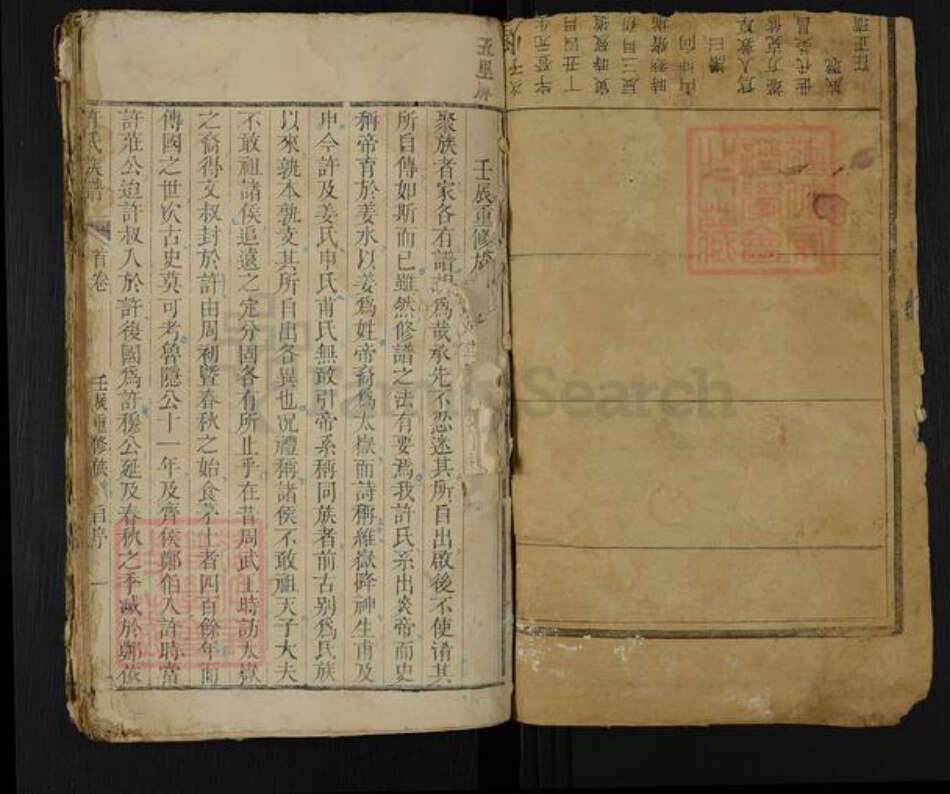 五里
壬辰重修族
聚族者家各有譜 為哉承先不忍迷其所自出啟後不使淆其
所自傳如斯而已雖然修譜之法有要焉我許氏系出炎帝而史
稱帝育於姜水以姜爲姓帝裔爲太嶽而詩稱維嶽降神生甫及
申今許及姜氏申氏甫氏無敢引帝系稱同族者前古别爲氏族
以來孰本孰支其所自出各異也况禮稱諸侯不敢祖天子大夫
不敢祖諸侯追遠之定分固各有所止乎在昔周武王時訪太嶽
之裔得文叔封於許由周初曁春秋之始食茅土者四百餘年而
傳國之世次古史莫可考魯隱公十一年及齊侯鄭伯入許時當
許莊公迨許叔入於許後國爲許穆公延及春秋之季滅於鄭依
氏族譜
首卷
壬辰重修族 自序 一
在正清
族縣
世代榮昌
端方克
爲人敦厚
讚曰
山向
時葬
辰三月
寅時歿
丁丑四月
生
次子
Search